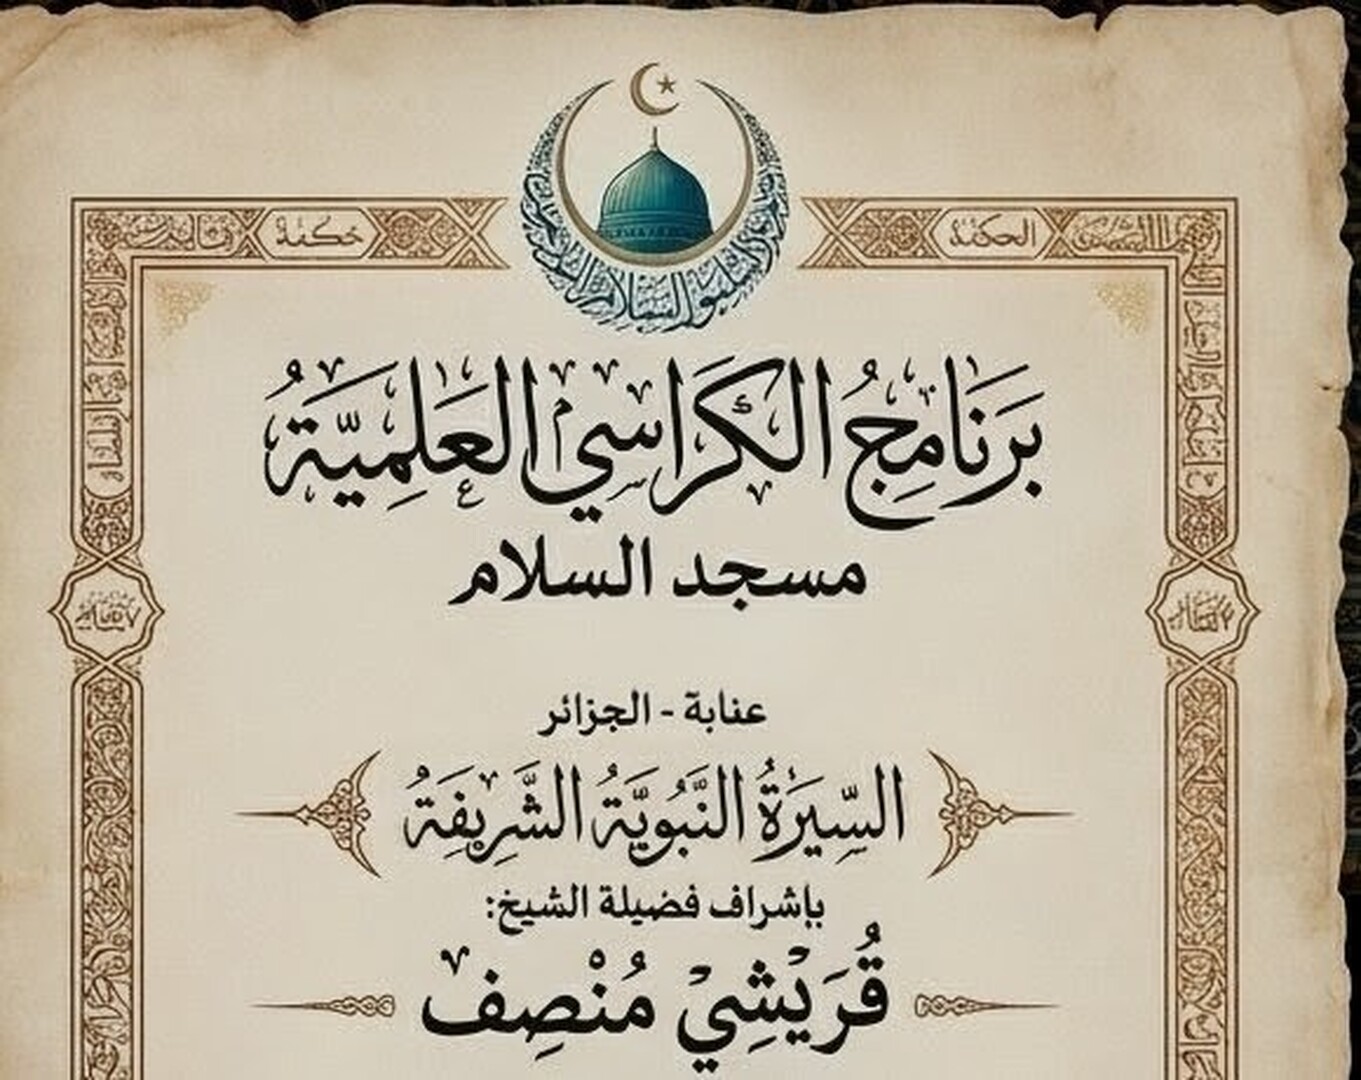 حكمة
الحكمة
بَرنَامِجُ الكَرَاسي العَلِميَّةُ
مسجد السلام
عنابة - الجزائر
السِّيرَةُ النَّبُويَّةُ الشَّرِيفَةُ
بإشراف فضيلة الشيخ:
قُرَيْشِيْ مُنْصِف